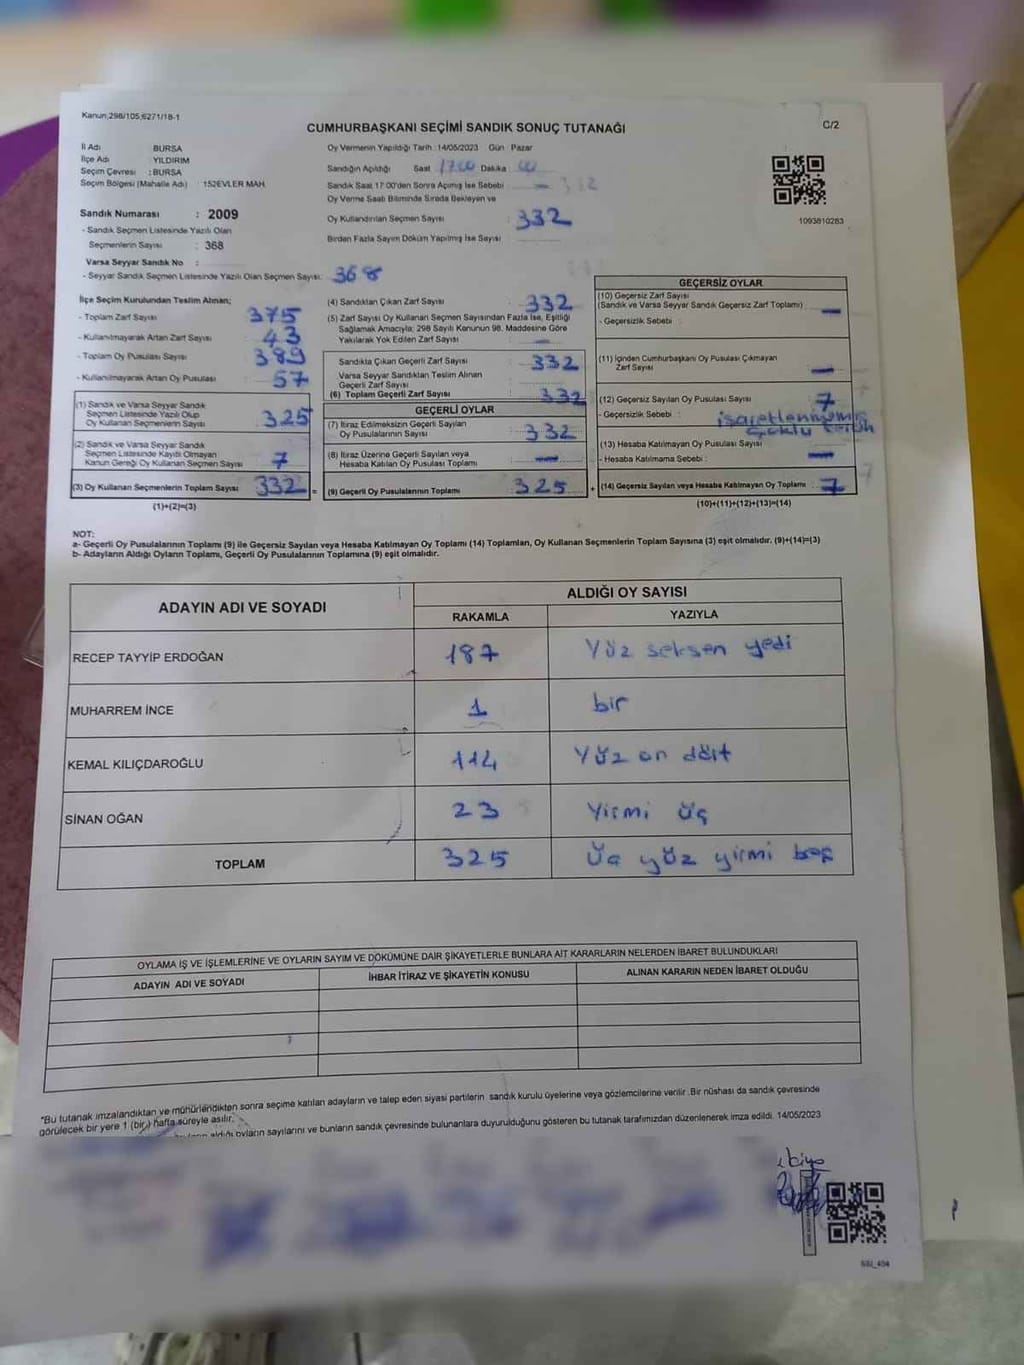 Kanun,298/105,6271/18-1
CUMHURBAŞKANI SEÇİMİ SANDIK SONUÇ TUTANAĞI
C/2
İl Adı BURSA
İlçe Adı YILDIRIM
Seçim Çevresi : BURSA
Seçim Bölgesi (Mahalle Adı) : 152EVLER MAH.
Oy Vermenin Yapıldığı Tarih : 14/05/2023 Gün : Pazar
Sandığın Açıldığı Saat 17:00 Dakika : 00
Sandık Saat 17:00'den Sonra Açımış İse Sebebi
Oy Verme Saati Bitiminde Sırada Bekleyen ve
Oy Kullandırılan Seçmen Sayısı : 332
Birden Fazla Sayım Döküm Yapılmış İse Sayısı
1093810283
Sandık Numarası : 2009
- Sandık Seçmen Listesinde Yazılı Olan
Seçmenlerin Sayısı : 368
Varsa Seyyar Sandık No :
- Seyyar Sandık Seçmen Listesinde Yazılı Olan Seçmen Sayısı: 368
İlçe Seçim Kurulundan Teslim Alınan;
- Toplam Zarf Sayısı : 375
- Kullanılmayarak Artan Zarf Sayısı : 43
- Toplam Oy Pusulası Sayısı : 389
- Kullanılmayarak Artan Oy Pusulası : 57
(1) Sandık ve Varsa Seyyar Sandık
Seçmen Listesinde Yazılı Olup
Oy Kullanan Seçmenlerin Sayısı : 325
(2) Sandık ve Varsa Seyyar Sandık
Seçmen Listesinde Kayıtlı Olmayan
Kanun Gereği Oy Kullanan Seçmen Sayısı : 7
(3) Oy Kullanan Seçmenlerin Toplam Sayısı : 332
(1)+(2)=(3)
(4) Sandıktan Çıkan Zarf Sayısı : 332
(5) Zarf Sayısı Oy Kullanan Seçmen Sayısından Fazla İse, Eşitliği
Sağlamak Amacıyla; 298 Sayılı Kanunun 98. Maddesine Göre
Yakılarak Yok Edilen Zarf Sayısı : —
Sandıkta Çıkan Geçerli Zarf Sayısı : 332
Varsa Seyyar Sandıktan Teslim Alınan
Geçerli Zarf Sayısı
(6) Toplam Geçerli Zarf Sayısı : 332
GEÇERLİ OYLAR
(7) İtiraz Edilmeksizin Geçerli Sayılan
Oy Pusulalarının Sayısı : 332
(8) İtiraz Üzerine Geçerli Sayılan veya
Hesaba Katılan Oy Pusulası Toplamı : —
= (9) Geçerli Oy Pusulalarının Toplamı : 325
GEÇERSİZ OYLAR
(10) Geçersiz Zarf Sayısı
(Sandık ve Varsa Seyyar Sandık Geçersiz Zarf Toplamı) —
- Geçersizlik Sebebi :
(11) İçinden Cumhurbaşkanı Oy Pusulası Çıkmayan
Zarf Sayısı —
(12) Geçersiz Sayılan Oy Pusulası Sayısı : 7
- Geçersizlik Sebebi :
(13) Hesaba Katılmayan Oy Pusulası Sayısı : —
- Hesaba Katılmama Sebebi :
+ (14) Geçersiz Sayılan veya Hesaba Katılmayan Oy Toplamı : 7
(10)+(11)+(12)+(13)=(14)
NOT:
a- Geçerli Oy Pusulalarının Toplamı (9) ile Geçersiz Sayılan veya Hesaba Katılmayan Oy Toplamı (14) Toplamları, Oy Kullanan Seçmenlerin Toplam Sayısına (3) eşit olmalıdır. (9)+(14)=(3)
b- Adayların Aldığı Oyların Toplamı, Geçerli Oy Pusulalarının Toplamına (9) eşit olmalıdır.
ADAYIN ADI VE SOYADI
ALDIĞI OY SAYISI
RAKAMLA YAZIYLA
RECEP TAYYİP ERDOĞAN 187 Yüz seksen yedi
MUHARREM İNCE 1 bir
KEMAL KILIÇDAROĞLU 114 Yüz on dört
SİNAN OĞAN 23 Yirmi üç
TOPLAM 325 Üç yüz yirmi beş
OYLAMA İŞ VE İŞLEMLERİNE VE OYLARIN SAYIM VE DÖKÜMÜNE DAİR ŞİKAYETLERLE BUNLARA AİT KARARLARIN NELERDEN İBARET BULUNDUKLARI
ADAYIN ADI VE SOYADI İHBAR İTİRAZ VE ŞİKAYETİN KONUSU ALINAN KARARIN NEDEN İBARET OLDUĞU
*Bu tutanak imzalandıktan ve mühürlendikten sonra seçime katılan adayların ve talep eden siyasi partilerin sandık kurulu üyelerine veya gözlemcilerine verilir .Bir nüshası da sandık çevresinde
görülecek bir yere 1 (bir) hafta süreyle asılır.
aldığı oyların sayılarını ve bunların sandık çevresinde bulunanlara duyurulduğunu gösteren bu tutanak tarafımızdan düzenlenerek imza edildi. 14/05/2023